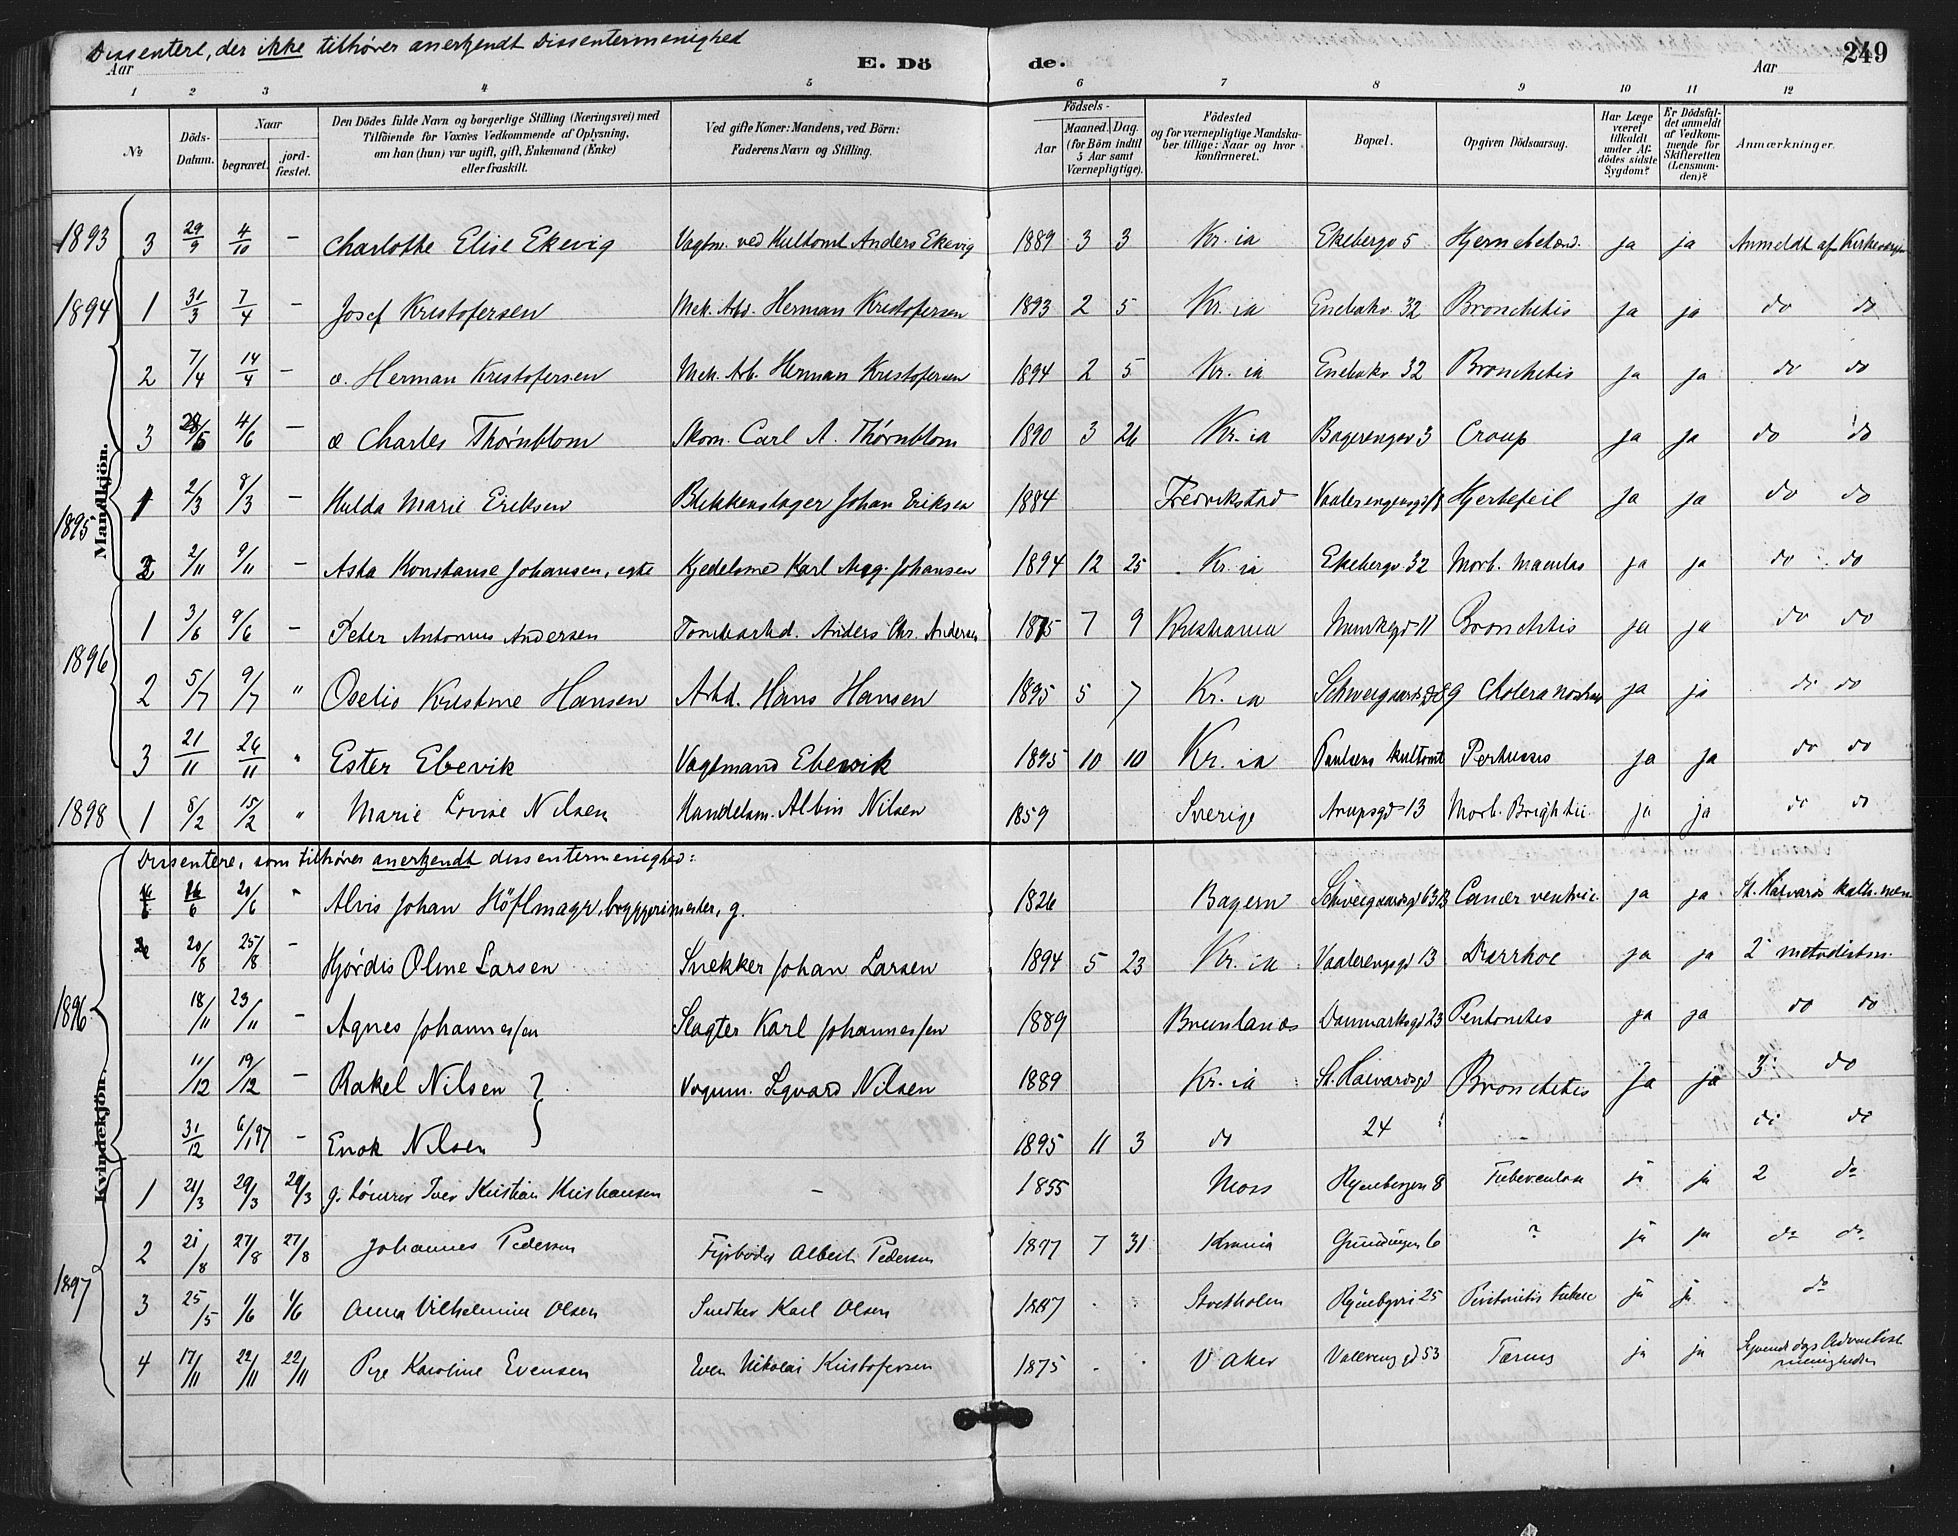 Dissentere, der ikke tilhører anerkendt Dissentermenighed
Aar
E. Dö de.
Aar
249
1 2 3 4 5 6 7 8 9 10 11 12
No
Döds-Datum.
Naar
begravet.
jordfæstet.
Den Dödes fulde Navn og borgerlige Stilling (Næringsvei) med
Tilföiende for Voxnes Vedkommende af Oplysning,
om han (hun) var ugift, gift, Enkemand (Enke)
eller fraskilt.
Ved gifte Koner: Mandens, ved Börn:
Faderens Navn og Stilling.
Födsels-
Aar
Maaned. Dag.
(for Börn indtil
5 Aar samt
Værnepligtige).
Födested
og for værnepligtige Mandskaber tillige: Naar og hvor
konfirmeret.
Bopæl.
Opgiven Dödsaarsag.
Har Læge
været
tilkaldt
under Afdödes sidste
Sygdom?
Er Dödsfaldet anmeldt
af Vedkommende for
Skifteretten
(Lensmanden)?
Anmærkninger.
Mandkjön.
1893 3 29/9 4/10 - Charlotte Elise Ekevig Vagtm. ved Kultomt. Anders Ekevig 1889 3 3 Kr.ia Ekebergv 5 Hjernebetænd. ja ja Anmeldt af
1894 1 31/3 7/4 - Josef Kristofersen Mek. Arbd. Herman Kristofersen 1893 2 5 Kr.ia Enebakv 32 Bronchitis ja ja do do
2 7/4 14/4 - Herman Kristofersen Mek. Arb. Herman Kristofersen 1894 2 5 Kr.ia Enebakv 32 Bronchitis ja ja do do
3 28/5 4/6 - Charles Thørnblom Skom. Carl A. Thørnblom 1890 3 26 Kr.ia Bagerengv 3 Croup ja ja do do
1895 1 2/3 8/3 - Hulda Marie Eriksen Blikkenslager Johan Eriksen 1884 Fredrikstad Hjertefeil ja ja do do
2 2/11 9/11 - Asta Konstanse Johansen, egte Kjedelsmed Karl Aug. Johansen 1894 12 25 Kr.ia Ekebergv 32 Morb. Maculos ja ja do do
1896 1 3/6 9/6 - Peter Antonius Andersen Anders Chr. Andersen 7 9 Kristiania Munkegd 11 Bronchitis ja ja do do
2 5/7 9/7 " Kristine Hansen Arbd. Hans Hansen 1895 5 7 Kr.ia Cholera nostras ja ja do do
3 21/11 26/11 " Ester Ekevik Vagtmand Ekevik 1895 10 10 Kr.ia Paulsens kultomt Pertussis ja ja do do
1898 1 8/2 15/2 " Marie Lovise Nilsen Handelsm. Albin Nilsen 1859 Sverige Arupsgd 13 Morb. Brightii ja ja do do
Dissentere, som tilhører anerkendt dissentermenighed:
Kvindekjön.
1896 16/6 20/6 " Alvis Johan Höflmayr, bryggerimester, g. 1826 Bayern Schweigaardsgd 63B Cancer ventric. ja ja St. Halvards kath. men
20/8 25/8 - Hjørdis Oline Larsen Snekker Johan Larsen 1894 5 23 Kr.ia Vaalerengsgd 13 Diarrhoe ja ja 2 metodistm.
18/11 23/11 - Agnes Johannessen Slagter Karl Johannessen 1889 Brunlanes Danmarksgd 23 Peritonitis ja ja do do
11/12 19/12 - Rakel Nilsen Vognm. Sigvard Nilsen 1889 Kr.ia St. Halvardsgd Bronchitis ja ja 3 do
31/12 6/1 97 - Enok Nilsen 1895 11 3 do 24 - do do
1897 1 21/3 29/3 29/3 g. Tømrer Iver Kristian Kristiansen - 1855 Moss 8 Tuberculose ja ja 2 do
2 21/8 27/8 27/8 Johannes Pedersen Fyrbøder Albert Pedersen 1897 7 31 Krania Grunningen 6 ? ja ja do do
3 25/5 1/6 1/6 Anna Vilhelmine Olsen Snedker Karl Olsen 1887 Stockholm 25 Peritonitis ja ja do
4 17/11 22/11 22/11 Pige Karoline Evensen Even Nikolai Kristofersen 1875 V Aker Valereng gd 53 ja ja Syvendedags Adventist
menigheden